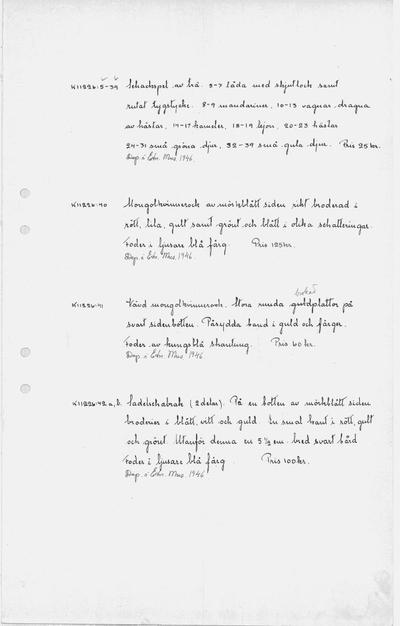 K11226:5-39 Schackspel av trä. 5-7 Låda med skjutlock samt
rutat tygstycke. 8-9 mandariner, 10-13 vagnar dragna
av hästar, 14-17 kameler, 18-19 lejon, 20-23 hästar
24-31 små gröna djur, 32-39 små gula djur. Pris 25 kr.
Dep. i Etn. Mus. 1946.
K11226:40 Mongolkvinnerock av mörkblått siden rikt broderad i
rött, lila, gult samt grönt och blått i olika schatteringar.
Foder i ljusare blå färg. Pris 125 kr.
Dep. i Etn. Mus. 1946.
brokad
K11226:41 Vävd mongolkvinnerock. Stora runda guldplattor på
svart sidenbotten. Påsydda band i guld och färger.
Foder av kungsblå shantung. Pris 60 kr.
Dep. i Etn. Mus. 1946
K11226:42 a, b. Sadelschabrak (2 delar). På en botten av mörkblått siden
broderier i blått, vitt och guld. En smal kant i rött, gult
och grönt. Utanför denna en 5 1/2 cm. bred svart bård
Foder i ljusare blå färg. Pris 100 kr.
Dep. i Etn. Mus. 1946